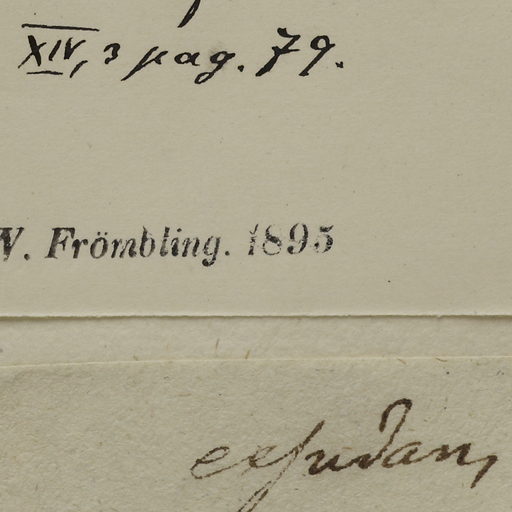 XIV, 3 pag. 79.
W. Frömbling. 1895